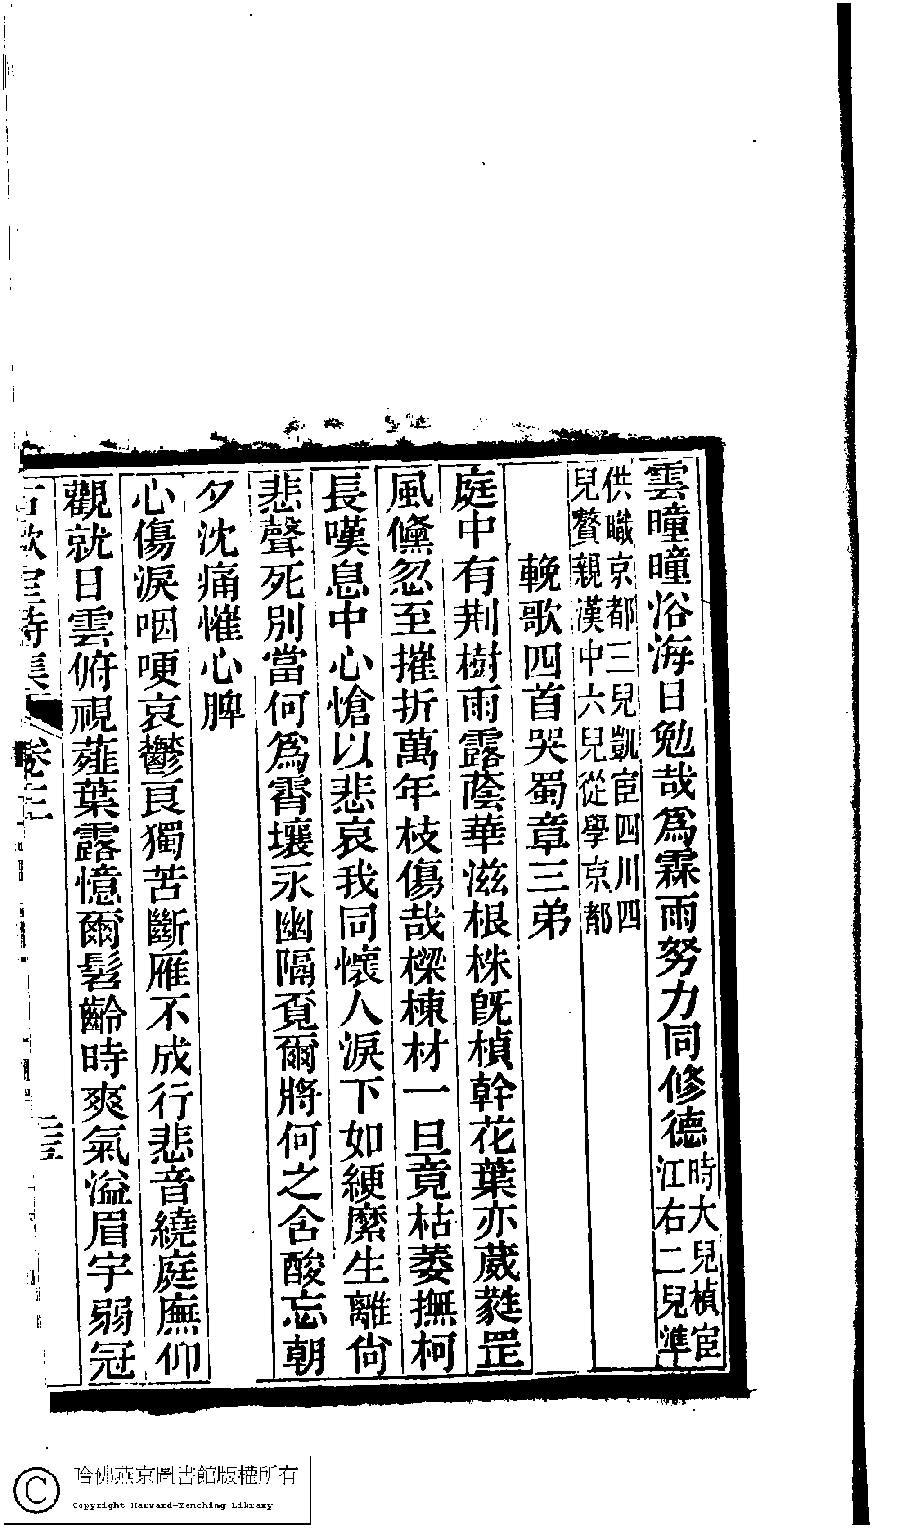 雲曈曈浴海日勉哉爲霖雨努力同修德時大兒楨宦江右二兒準
供職京都三兒凱宦四川四兒贅親漢中六兒從學京都
輓歌四首哭蜀章三弟
庭中有荆樹雨露蔭華滋根株旣楨幹花葉亦葳蕤罡
風儵忽至摧折萬年枝傷哉樑棟材一旦竟枯萎撫柯
長嘆息中心愴以悲哀我同懷人淚下如綆縻生離尙
悲聲死別當何爲霄壤永幽隔覔爾將何之含酸忘朝
夕沈痛慛心脾
心傷淚咽哽哀鬱長獨苦斷雁不成行悲音繞庭廡仰
觀就日雲俯視薤葉露憶爾髫齡時爽氣溢眉宇弱冠
詩集 卷三
哈佛燕京圖書館版權所有
Copyright Harvard-Yenching Library